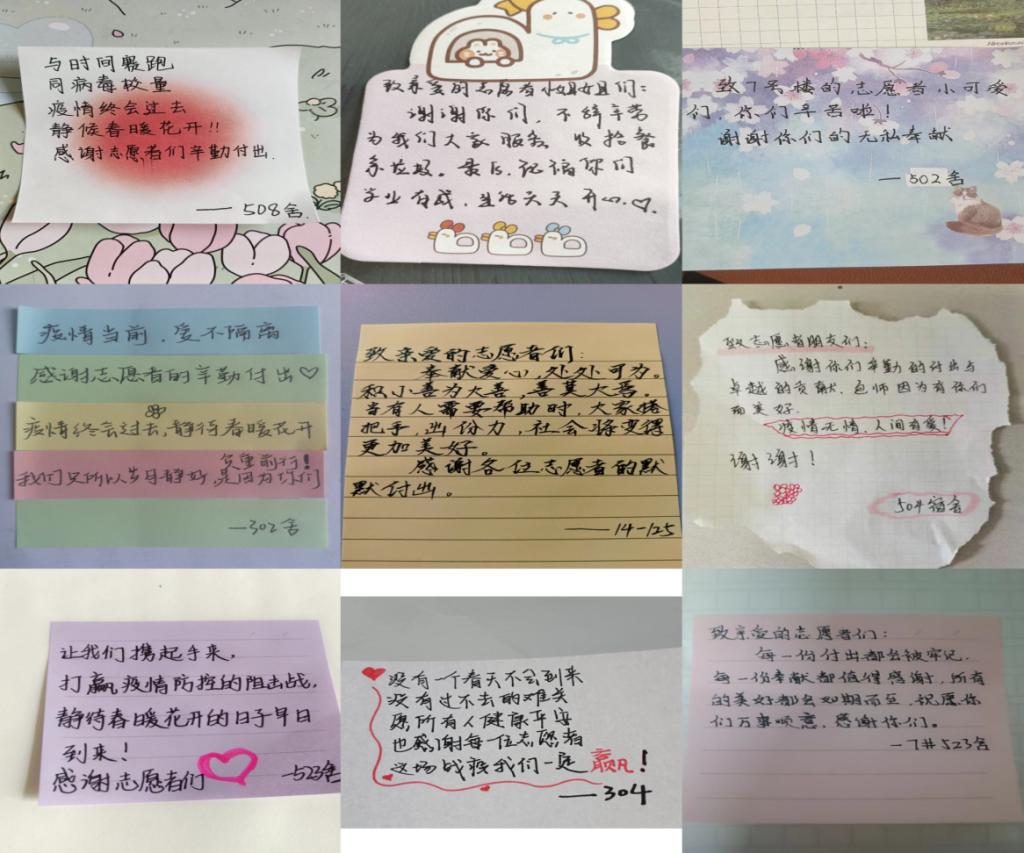 与时间赛跑
同病毒较量
疫情终会过去
静候春暖花开!!
感谢志愿者们辛勤付出.
—— 508舍.
致亲爱的志愿者小姐姐们:
谢谢你们,不辞辛劳
为我们大家服务 收拾餐
余垃圾。最后,记得你们
学业有成,生活天天开心.♡.
致7号楼的志愿者小可爱
们,你们辛苦啦!
谢谢你们的无私奉献
—502舍
疫情当前,爱不隔离
感谢志愿者的辛勤付出♡
疫情终会过去,静待春暖花开
我们之所以岁月静好,是因为你们
负重前行!
—302舍
致亲爱的志愿者们:
奉献爱心,处处可为。
积小善为大善,善莫大焉。
当有人需要帮助时,大家搭
把手,出份力,社会将变得
更加美好。
感谢各位志愿者的默
默付出。
——14-125
致志愿者朋友们:
感谢你们辛勤的付出与
卓越的贡献.包师因为有你们
而美好.
疫情无情,人间有爱!
谢谢!
504宿舍
让我们携起手来,
打赢疫情防控的阻击战,
静待春暖花开的日子早日
到来!
感谢志愿者们
—523舍
没有一个春天不会到来
没有过不去的难关
愿所有人健康平安
也感谢每一位志愿者
这场战疫我们一定赢!
——304
致亲爱的志愿者们:
每一份付出都会被牢记,
每一份奉献都值得感谢,所有
的美好都会如期而至,祝愿你
们万事顺意,感谢你们。
—7#523舍